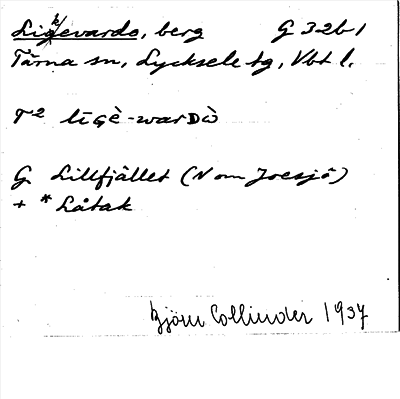 Likevardo, berg G 32b1
Tärna sn, Lycksele tg, Vbt l.
T² līGè-warDò
G Lillfjället (N om Joesjö)
+ *Låtak
Björn Collinder 1937